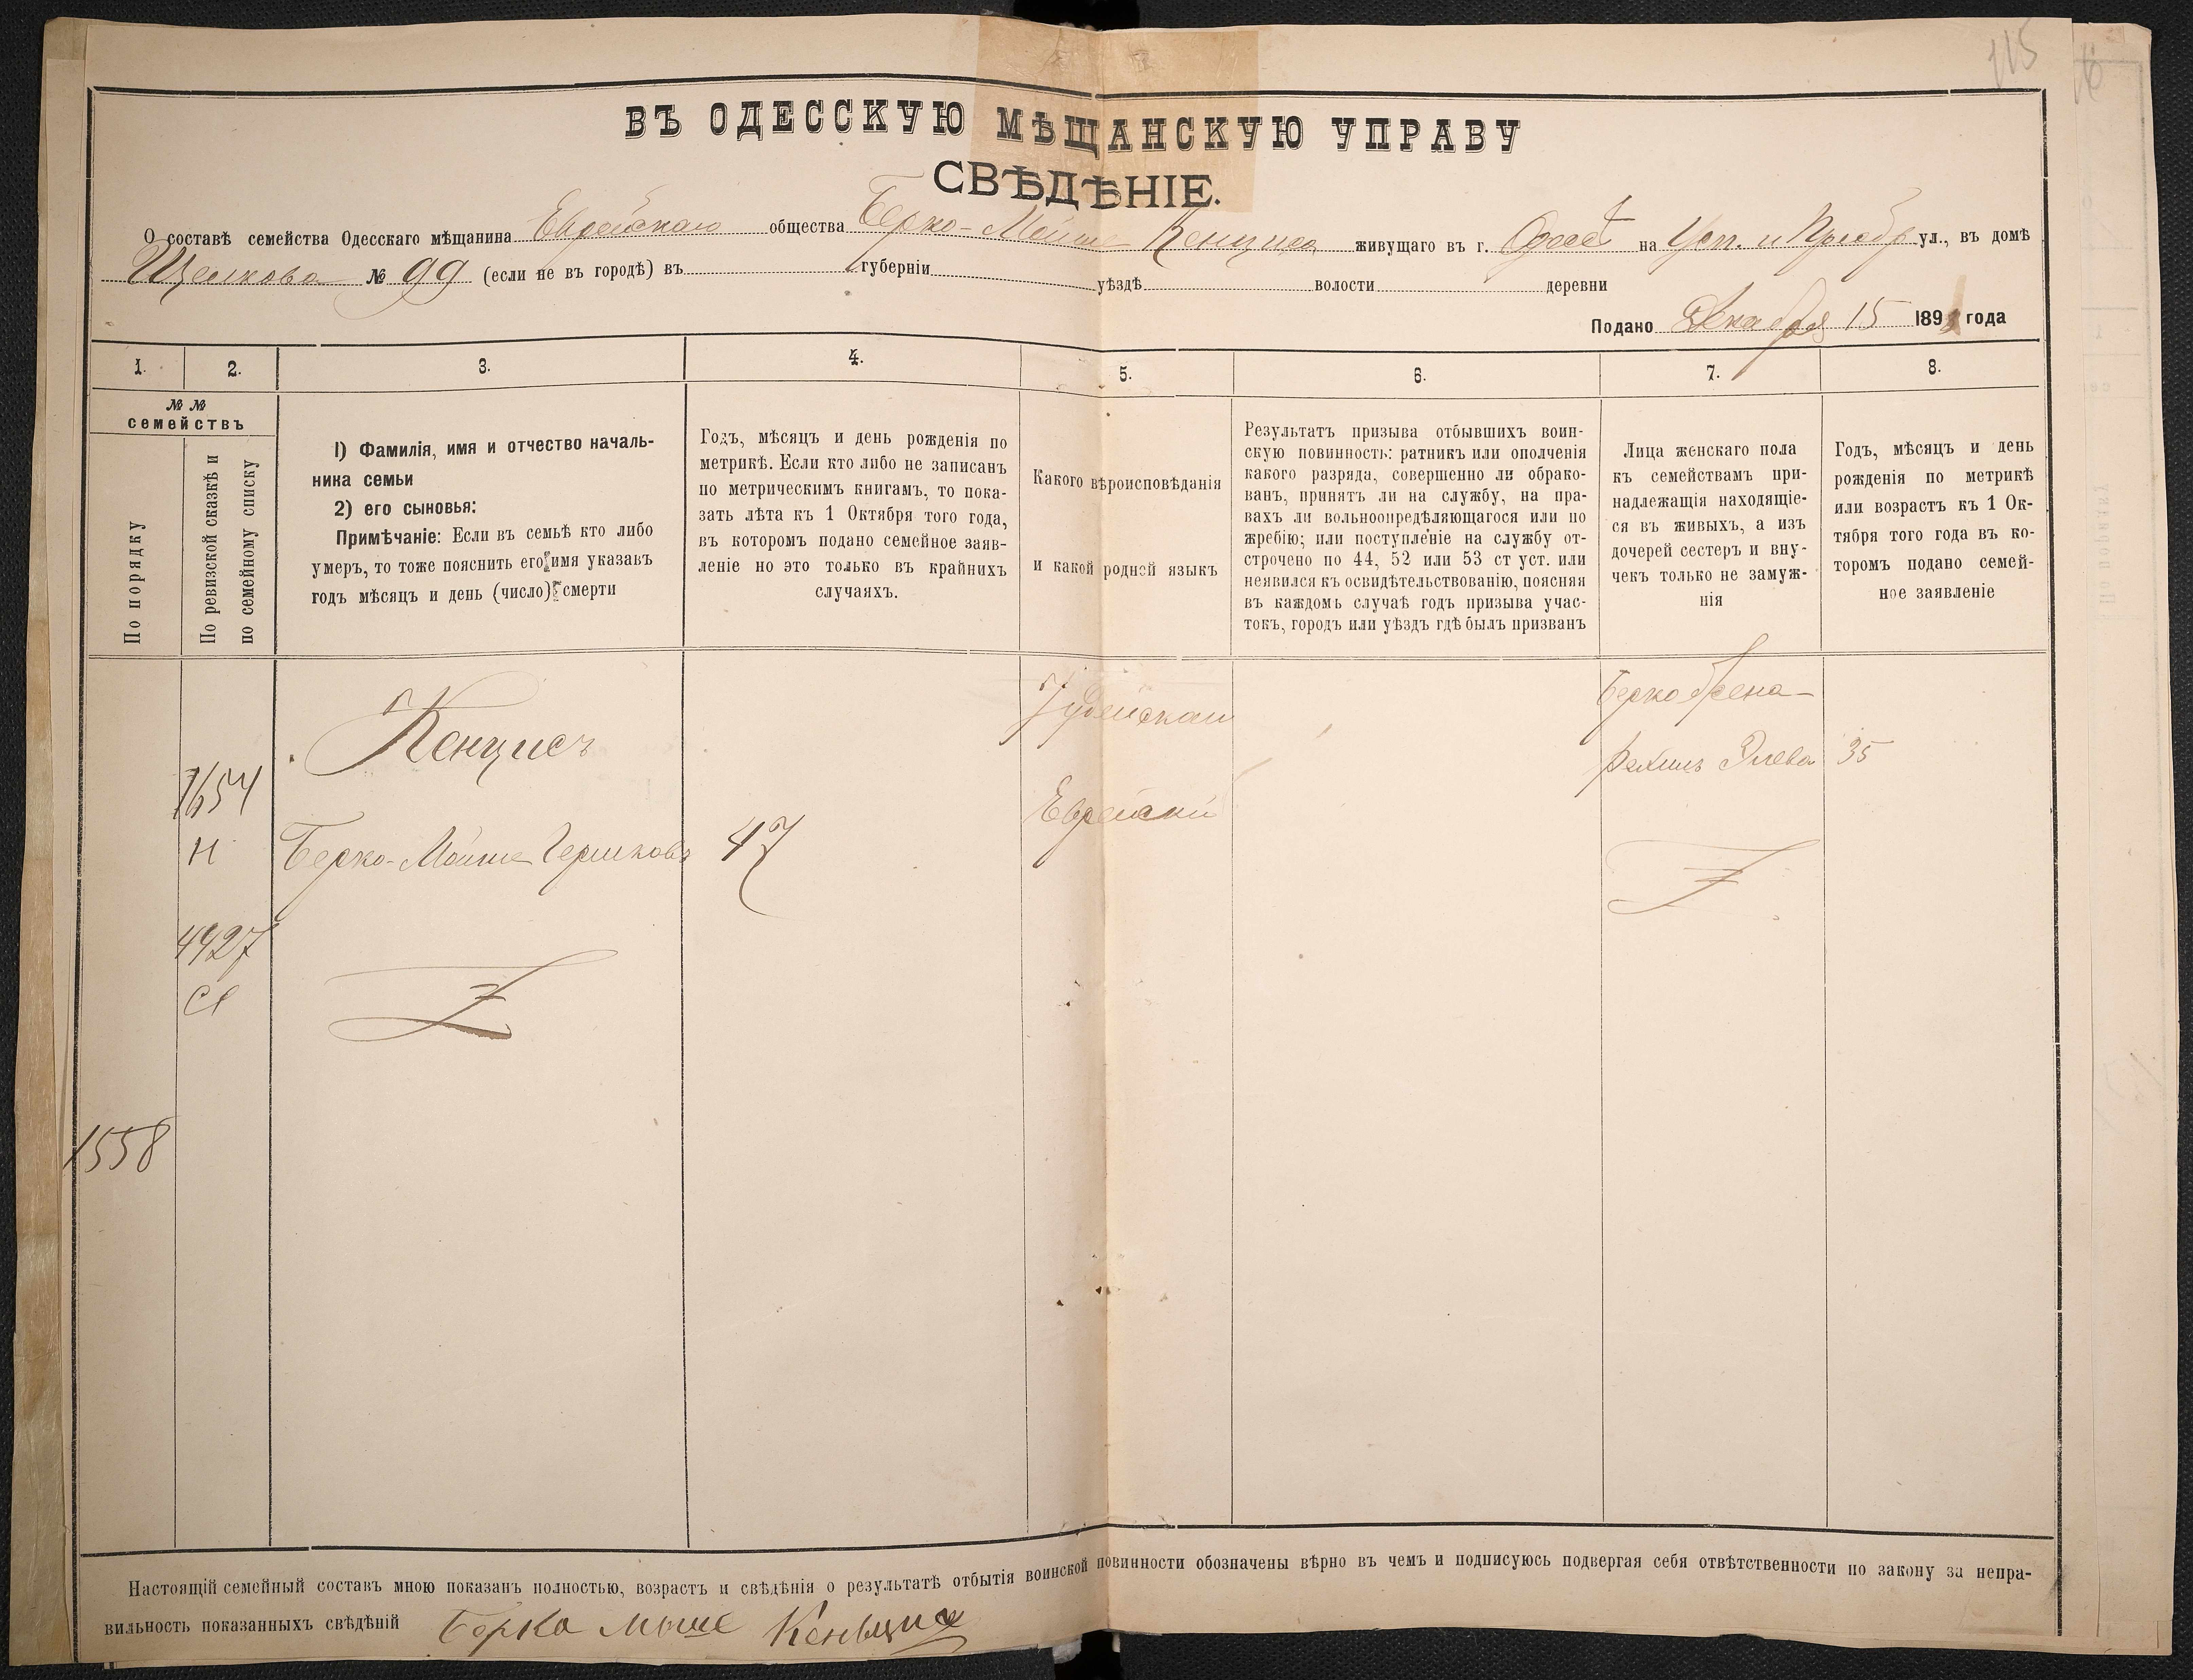 115
ВЪ ОДЕССКУЮ МѢЩАНСКУЮ УПРАВУ
СВѢДѢНІЕ.
О составѣ семейства Одесскаго мѣщанина Еврейскаго общества Берко-Мойше Кенциса живущаго въ г. Одессѣ на Усп. и ул., въ домѣ
№ 99 (если не въ городѣ) въ губерніи уѣздѣ волости деревни
Подано Декабря 15 189 года
1. 2. 3. 4. 5. 6. 7. 8.
№ №
семействъ
По порядку
По ревизской сказкѣ и
по семейному списку
1) Фамилія, имя и отчество началь-
ника семьи
2) его сыновья:
Примѣчаніе: Если въ семьѣ кто либо
умеръ, то тоже пояснить его имя указавъ
годъ мѣсяцъ и день (число) смерти
Годъ, мѣсяцъ и день рожденія по
метрикѣ. Если кто либо не записанъ
по метрическимъ книгамъ, то пока-
зать лѣта къ 1 Октября того года,
въ которомъ подано семейное заяв-
леніе но это только въ крайнихъ
случаяхъ.
Какого вѣроисповѣданія
и какой родной языкъ
Результатъ призыва отбывшихъ воин-
скую повинность: ратникъ или ополченія
какого разряда, совершенно ли обрако-
ванъ, принятъ ли на службу, на пра-
вахъ ли вольноопредѣляющагося или по
жребію; или поступленіе на службу от-
строчено по 44, 52 или 53 ст уст. или
неявился къ освидѣтельствованію, поясняя
въ каждомъ случаѣ годъ призыва учас-
токъ, городъ или уѣздъ гдѣ былъ призванъ
Лица женскаго пола
къ семействамъ при-
надлежащія находящіе-
ся въ живыхъ, а изъ
дочерей сестеръ и вну-
чекъ только не замуж-
нія
Годъ, мѣсяцъ и день
рожденія по метрикѣ
или возрастъ къ 1 Ок-
тября того года въ ко-
торомъ подано семей-
ное заявленіе
Кенцисъ
Іудейскаго
Берко жена
Рахиль 35
1654
Н
Берко-Мойше Гершковъ 47
Еврейскій
4927
1558
Настоящій семейный составъ мною показанъ полностью, возрастъ и свѣдѣнія о результатѣ отбытія воинской повинности обозначены вѣрно въ чемъ и подписуюсь подвергая себя отвѣтственности по закону за непра-
вильность показанныхъ свѣдѣній Берка Мыше Кеньцис